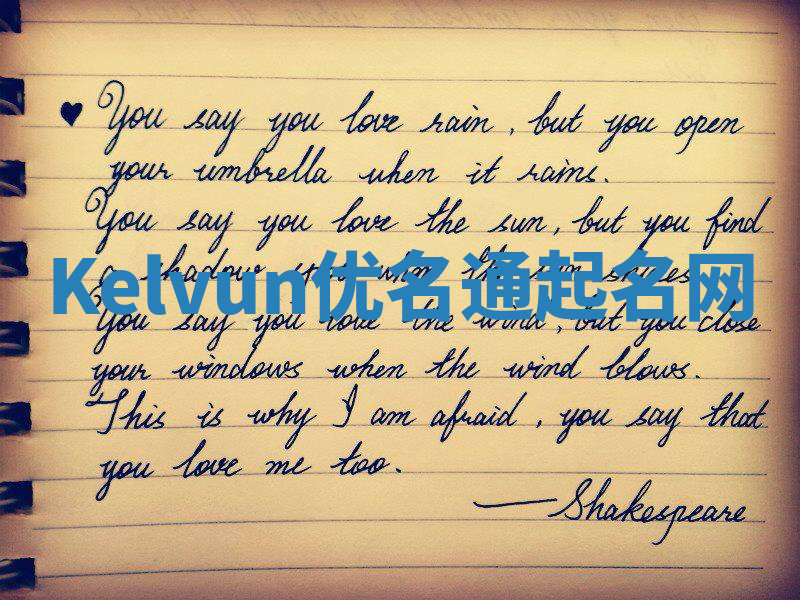 ♥ You say you love rain, but you open
your umbrella when it rains.
You say you love the sun, but you find
a shadow spot when the sun shines.
Kelvun优名通起名网
You say you love the wind, but you close
your windows when the wind blows.
This is why I am afraid, you say that
you love me too.
— Shakespeare